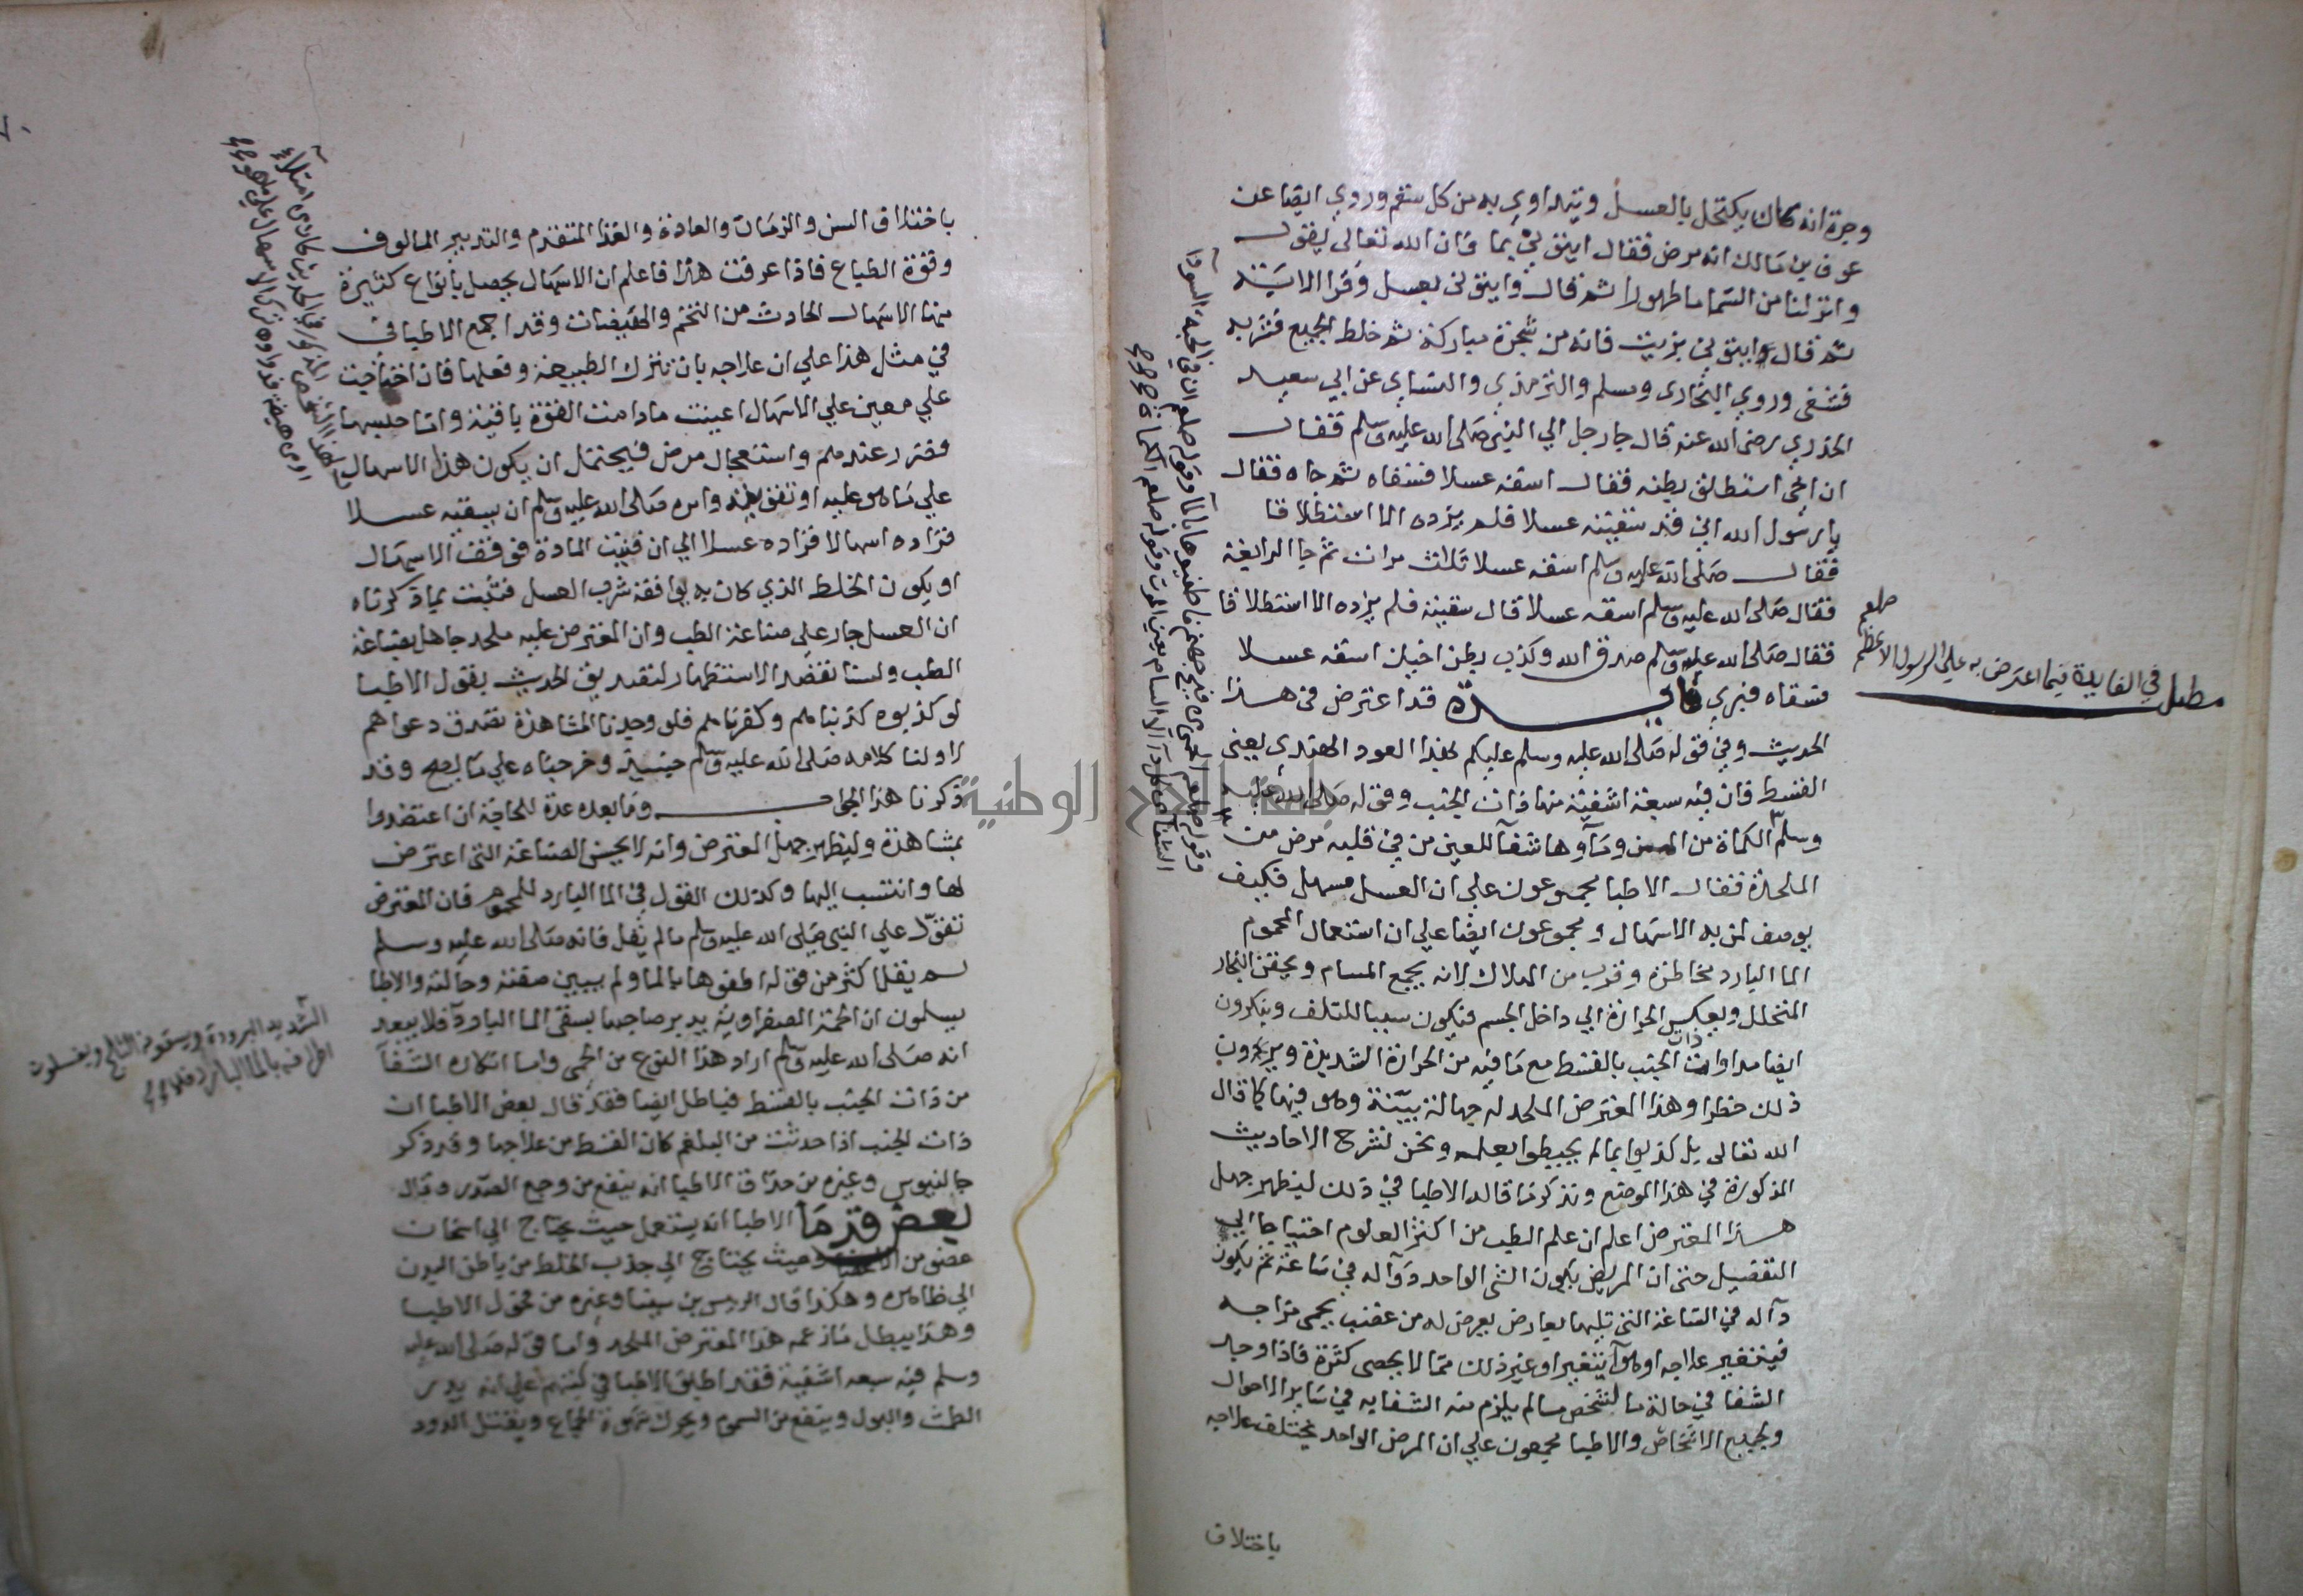 وجرة انه كان يكتحل بالعسل ويتداوي به من كل سقم وروي ايضا عن
عوف بن مالك انه مرض فقال ايتوني بما فان الله تعالى يقول
وانزلنا من السما ما طهورا ثم قال وايتوني بعسل وقرا الاية
ثم قال وايتوني بزيت فانه من شجرة مباركة ثم خلط الجميع فشربه
فشفى وروي البخاري ومسلم والترمذي والنساي عن ابي سعيد
الخدري رضى الله عنه قال جا رجل الي النبي صلى الله عليه وسلم فقال
ان اخي استطلق بطنه فقال اسقه عسلا فسقاه ثم جاه فقال
يا رسول الله اني قد سقيته عسلا فلم يزده الا استطلاقا
فقال صلى الله عليه وسلم اسقه عسلا ثلاث مرات ثم جا الرابعة
فقال صلى الله عليه وسلم اسقه عسلا قال سقيته فلم يزده الا استطلاقا
فقال صلى الله عليه وسلم صدق الله وكذب بطن اخيك اسقه عسلا
فسقاه فبري فايدة قد اعترض في هذا
الحديث وفي قوله صلى الله عليه وسلم عليكم بهذا العود الهندي يعنى
القسط فان فيه سبعة اشفية منها ذات الجنب وقوله صلى الله عليه
وسلم الكماة من المن وماوها شفآ للعين من في قلبه مرض من
الملحدة فقال الاطبا مجموعون علي ان العسل مسهل فكيف
يوصف لمن به الاسهال ومجموعون ايضا علي ان استعمال المحموم
الما البارد مخاطرة وقرب من الهلاك لانه يجمع المسام ويحقن البخار
المتحلل ويعكس الحرارة الي داخل الجسم فيكون سببا للتلف وينكرون
ايضا مداواة ذات الجنب بالقسط مع ما فيه من الحرارة الشديدة ويرون
ذلك خطرا وهذا المعترض الملحد له جهالة بينة وهو فيها كما قال
الله تعالى بل كذبوا بما لم يحيطوا بعلمه ونحن نشرح الاحاديث
المذكورة في هذا الموضع ونذكر ما قاله الاطبا في ذلك ليظهر جهل
هذا المعترض اعلم ان علم الطب من اكثر العلوم احتياجا الي
التفصيل حتى ان المريض يكون الشي الواحد دوآ له في ساعة ثم يكون
دآ له في الساعة التي تليها بعارض يعرض له من غضب يحمى مزاجه
فيتغير علاجه او هوآ يتغير او غير ذلك مما لا يحصى كثرة فاذا وجد
الشفا في حالة ما لشخص ما لم يلزم منه الشفا به في ساير الاحوال
ولجميع الاشخاص والاطبا مجمعون علي ان المرض الواحد يختلف علاجه
باختلاف
مطلب في الفايدة فيما اعترض به علي الرسول الاعظم
صلعم
باختلاف السن والزمان والعادة والغذا المتقدم والتدبير المالوف
وقوة الطباع فاذا عرفت هذا فاعلم ان الاسهال يحصل بانواع كثيرة
منها الاسهال الحادث من التخم والهيضات وقد اجمع الاطبا في
في مثل هذا علي ان علاجه بان تترك الطبيعة وفعلها فان احتاجت
علي معين علي الاسهال اعينت ما دامت القوة باقية واما حبسها
فضرر عندهم واستعجال مرض فيحتمل ان يكون هذا الاسهال
علي ما هو عليه وامره صلى الله عليه وسلم ان يسقيه عسلا
فزاده اسهالا فزاده عسلا الي ان فنيت المادة فوقف الاسهال
او يكون الخلط الذي كان به يوافقه شرب العسل فثبت بما ذكرناه
ان العسل جار علي صناعة الطب وان المعترض عليه ملحد جاهل بصناعة
الطب ولسنا نقصد الاستظهار لتصديق الحديث بقول الاطبا
لو كذبوه كذبناهم وكفرناهم فلو وجدنا المشاهدة تصدق دعواهم
اولنا كلامه صلى الله عليه وسلم حينيذ وخرجناه علي ما يصح وقد
ذكرنا هذا الجواب وما بعده عدة للحاجة ان اعتضدوا
بمشاهدة وليظهر جهل المعترض وانه لا يحسن الصناعة التي اعترض
لها وانتسب اليها وكذلك القول في الما البارد للمحموم فان المعترض
تقوّل علي النبي صلى الله عليه وسلم ما لم يقل فانه صلى الله عليه وسلم
لم يقل اكثر من قوله اطفوها بالما ولم يبين صفته وحالته والاطبا
يسلمون ان الحمى الصفراوية يدبر صاحبها بسقى الما البارد فلا يبعد
انه صلى الله عليه وسلم اراد هذا النوع من الحمى واما انكاره الشفآ
من ذات الجنب بالقسط فباطل ايضا فقد قال بعض الاطبا ان
ذات الجنب اذا حدثت من البلغم كان القسط من علاجها وقد ذكر
جالنيوس وغيره من حذاق الاطبا انه ينفع من وجع الصدر وقال
بعض قدما الاطبا انه يستعمل حيث يحتاج الي اسخان
عضو من الاعضا وحيث يحتاج الي جذب الخلط من باطن البدن
الي ظاهره وهكذا قال الرييس بن سينا وغيره من فحول الاطبا
وهذا يبطل ما زعمه هذا المعترض الملحد واما قوله صلى الله عليه
وسلم فيه سبعه اشفية فقد اطبق الاطبا في كتبهم علي انه يدر
الطمث والبول وينفع من السموم ويحرك شهوة الجماع ويقتل الدود
الشديد البرودة ويسقونه الثلج ويغسلون
اطرافه بالما البارد
جامعة النجاح الوطنية